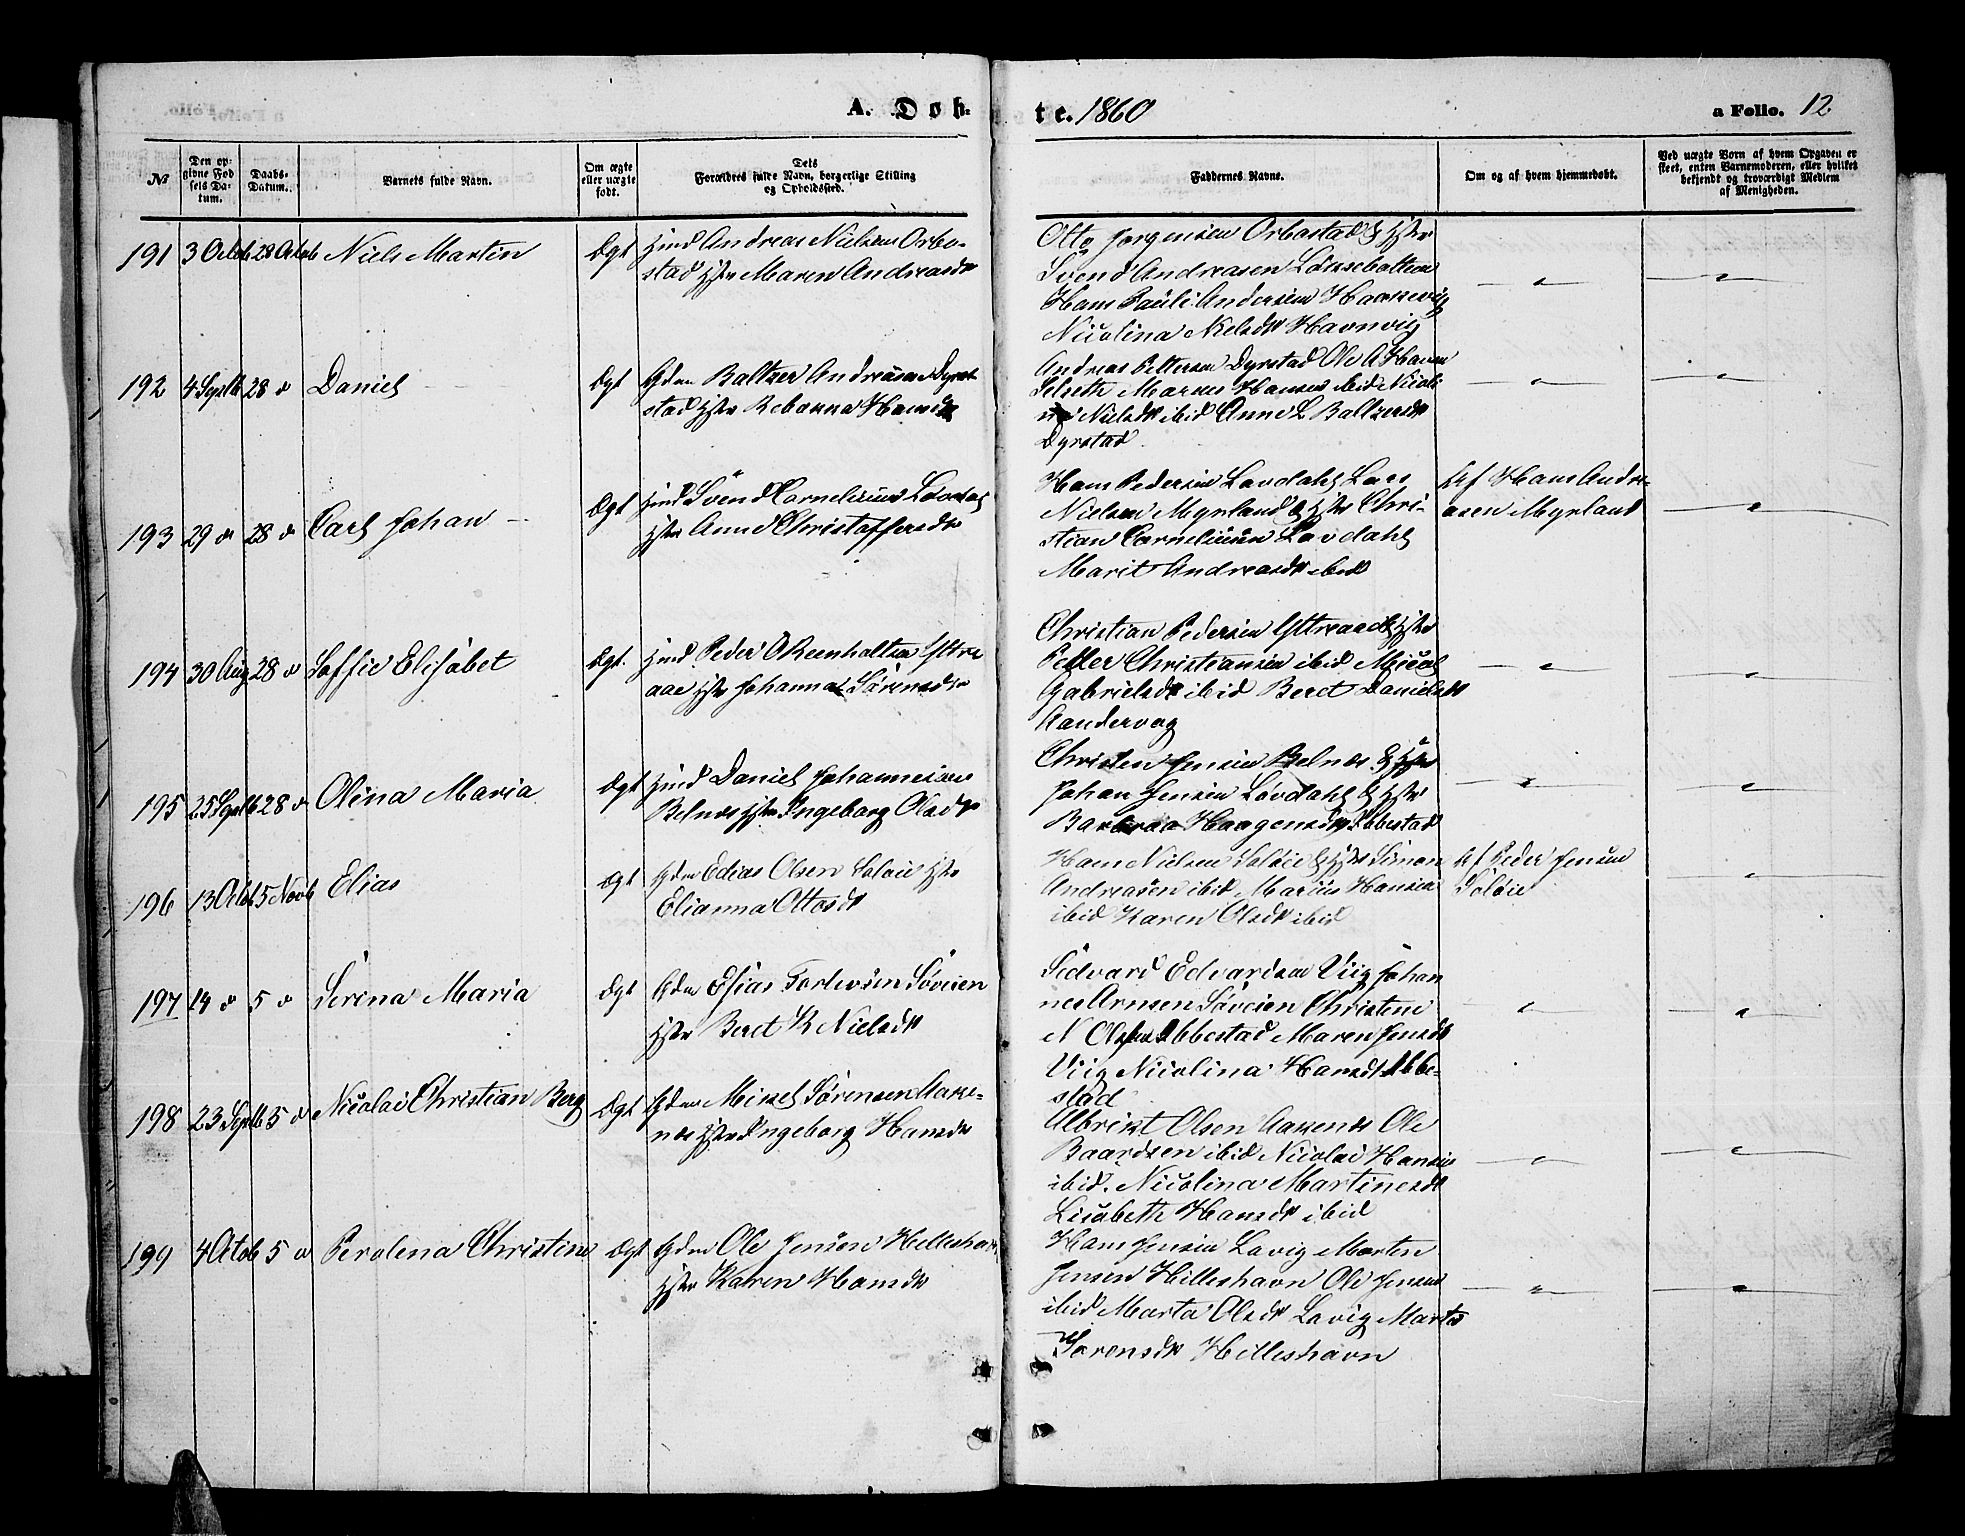 A. Døb-
te. 1860
a Folio. 12
№
Den op-
givne Fød
sels Da-
tum.
Daabs-
Datum.
Barnets fulde Navn.
Om ægte
eller uægte
født.
Dets
Forældres fulde Navn, borgerlige Stilling
og Opholdssted.
Faddernes Navne.
Om og af hvem hjemmedøbt.
Ved uægte Børn af hvem Opgaven er
skeet, enten Barnemoderen, eller hvilket
bekjendt og troværdigt Medlem
af Menigheden.
191 3 Octob 28 Octob Niels Martin Ægt Andreas Nielsen Orbo-
stad Hstr Maren Andreasdr
Otto Jørgensen Orbostad & Hstr
Svend Andreasen
Hans Pauli Andersen
Nicolina Nielsdr Havnvig
192 4 Septb 28 " Daniel Ægt Gdm Baltzer Andreasen Dyrst
stad Hstr Rebanna Hansdr
Andreas Pettersen Dyrstad Ole A
Selseth Hansen ibid Nicoli
na Nielsdr ibid Anne L Baltzersdr
Dyrstad
193 29 " 28 " Carl Johan Ægt Svend Cornelius Løvdahl
Hstr Anne Christoffersdr
Hans Pedersen Løvdahl Lars
Nielsen Myrland & Hstr Chri-
stian Corneliusen Løvdahl
Marit Andreasdr ibid
Af Hans Andre-
asen Myrland
194 30 Aug 28 " Soffie Elisabet Ægt. Peder O Reinholtsen Yttre
aae Hstr Johanna Sørensdr
Christian Pedersen & Hstr
Petter Christiansen ibid
Gabrielsdr ibid Beret Danielsdr
Aandervag
195 25 Septb 28 " Olina Maria Ægt Daniel Johannesen
Belnes Hstr Ingeborg Olsdr
Christen Jensen Belnes & Hstr
Johan Jensen Løvdahl & Hstr
Barbraa Haagensdr Ibbestad
196 13 Octob 5 Novb Elias Ægt Gdm Edias Olsen Soløie Hstr
Elianna Ottosdr
Hans Nielsen Soløie & Hstr Simon
Andreasen ibid Marius Hansen
ibid Karen Olsdr ibid
Af Peder Jensen
Soløie
197 14 " 5 " Serina Maria Ægt Gdm Esias Torlevsen Søveien
Hstr Beret K Nielsdr
Sidvard Edvardsen Viig Johan
nes Arnsen Søveien Christine
N Olsen Ibbestad Maren Jensdr
Viig Nicolina Hansdr Ibbe-
stad
198 23 Septb 5 " Nicolai Christian Berg Ægt Gdm Mikel Sørensen Aake-
nes Hstr Ingeborg Hansdr
Albrikt Olsen Aakenes Ole
Baardsen ibid Nicolai Hansen
ibid. Nicolina Martinesdr
Lisabeth Hansdr ibid
199 4 Octob 5 " Perolena Christine Ægt Gdm Ole Jensen Helleshavn
Hstr Karen Hansdr
Hans Jensen Lavig Morten
Jensen Hilleshavn Ole Jensen
ibid Marta Olsdr Lavig Marta
Sørensdr Hilleshavn